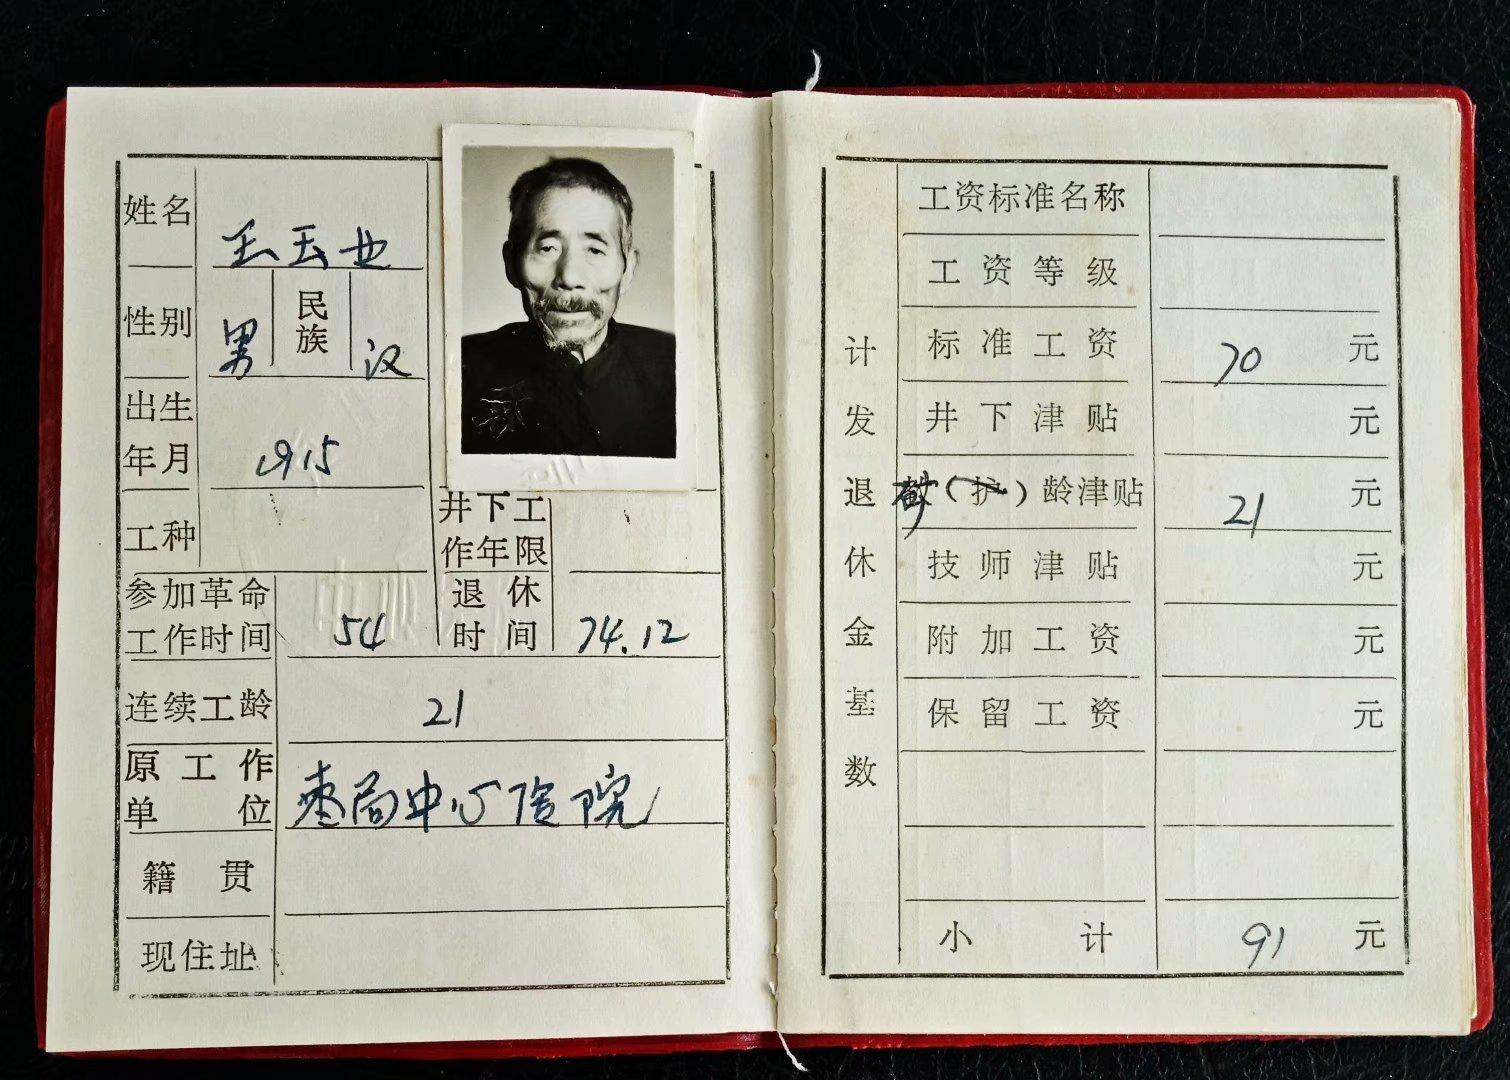 姓名 王玉世
性别 男 民族 汉
出生年月 1915
工种
井下工作年限
参加革命工作时间 54
退休时间 74.12
连续工龄 21
原工作单位 枣局中心医院
籍贯
现住址
计发退休金基数
工资标准名称
工资等级
标准工资 70 元
井下津贴 元
(护)龄津贴 21 元
技师津贴 元
附加工资 元
保留工资 元
小计 91 元